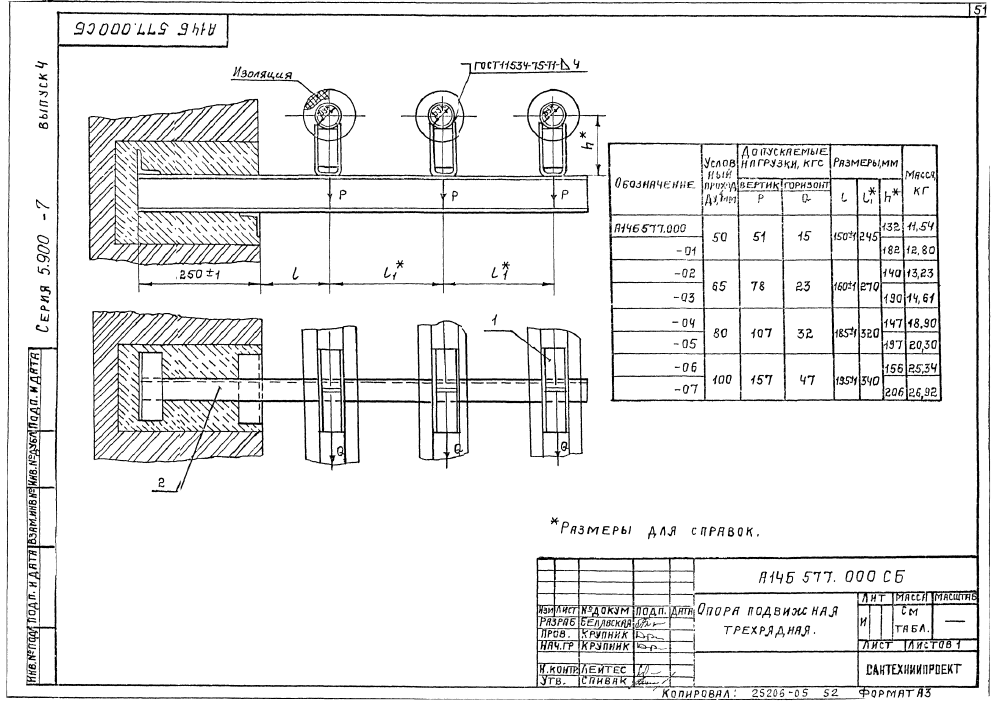 51
А14Б 577.000СБ
СЕРИЯ 5.900 -7 ВЫПУСК 4
Изоляция
ГОСТ 11534-75-Т1-⊿4
h*
P
P
P
250±1
l
l1*
l1*
1
2
Q
Q
Q
ОБОЗНАЧЕНИЕ
УСЛОВНЫЙ ПРОХОД Ду, мм
ДОПУСКАЕМЫЕ НАГРУЗКИ, КГС
РАЗМЕРЫ, ММ
МАССА, КГ
ВЕРТИК P
ГОРИЗОНТ Q
l l1* h*
А14Б577.000 50 51 15 150±1 245 132 11,54
-01 182 12,80
-02 65 78 23 160±1 270 140 13,23
-03 190 14,61
-04 80 107 32 185±1 320 147 18,90
-05 197 20,30
-06 100 157 47 195±1 340 156 25,34
-07 206 26,92
*РАЗМЕРЫ ДЛЯ СПРАВОК.
ИНВ.№ПОДЛ ПОДП. И ДАТА ВЗАМ.ИНВ.№ ИНВ.№ДУБЛ ПОДП. И ДАТА
А14Б 577. 000 СБ
ИЗМ ЛИСТ №ДОКУМ ПОДП. ДАТА
РАЗРАБ БЕЛЯВСКАЯ
ПРОВ. КРУПНИК
НАЧ.ГР КРУПНИК
Н.КОНТР. ЛЕЙТЕС
УТВ. СПИВАК
ОПОРА ПОДВИЖНАЯ
ТРЕХРЯДНАЯ.
ЛИТ МАССА МАСШТАБ
И СМ ТАБЛ. —
ЛИСТ ЛИСТОВ 1
САНТЕХНИИПРОЕКТ
КОПИРОВАЛ: 25206-05 52 ФОРМАТ А3